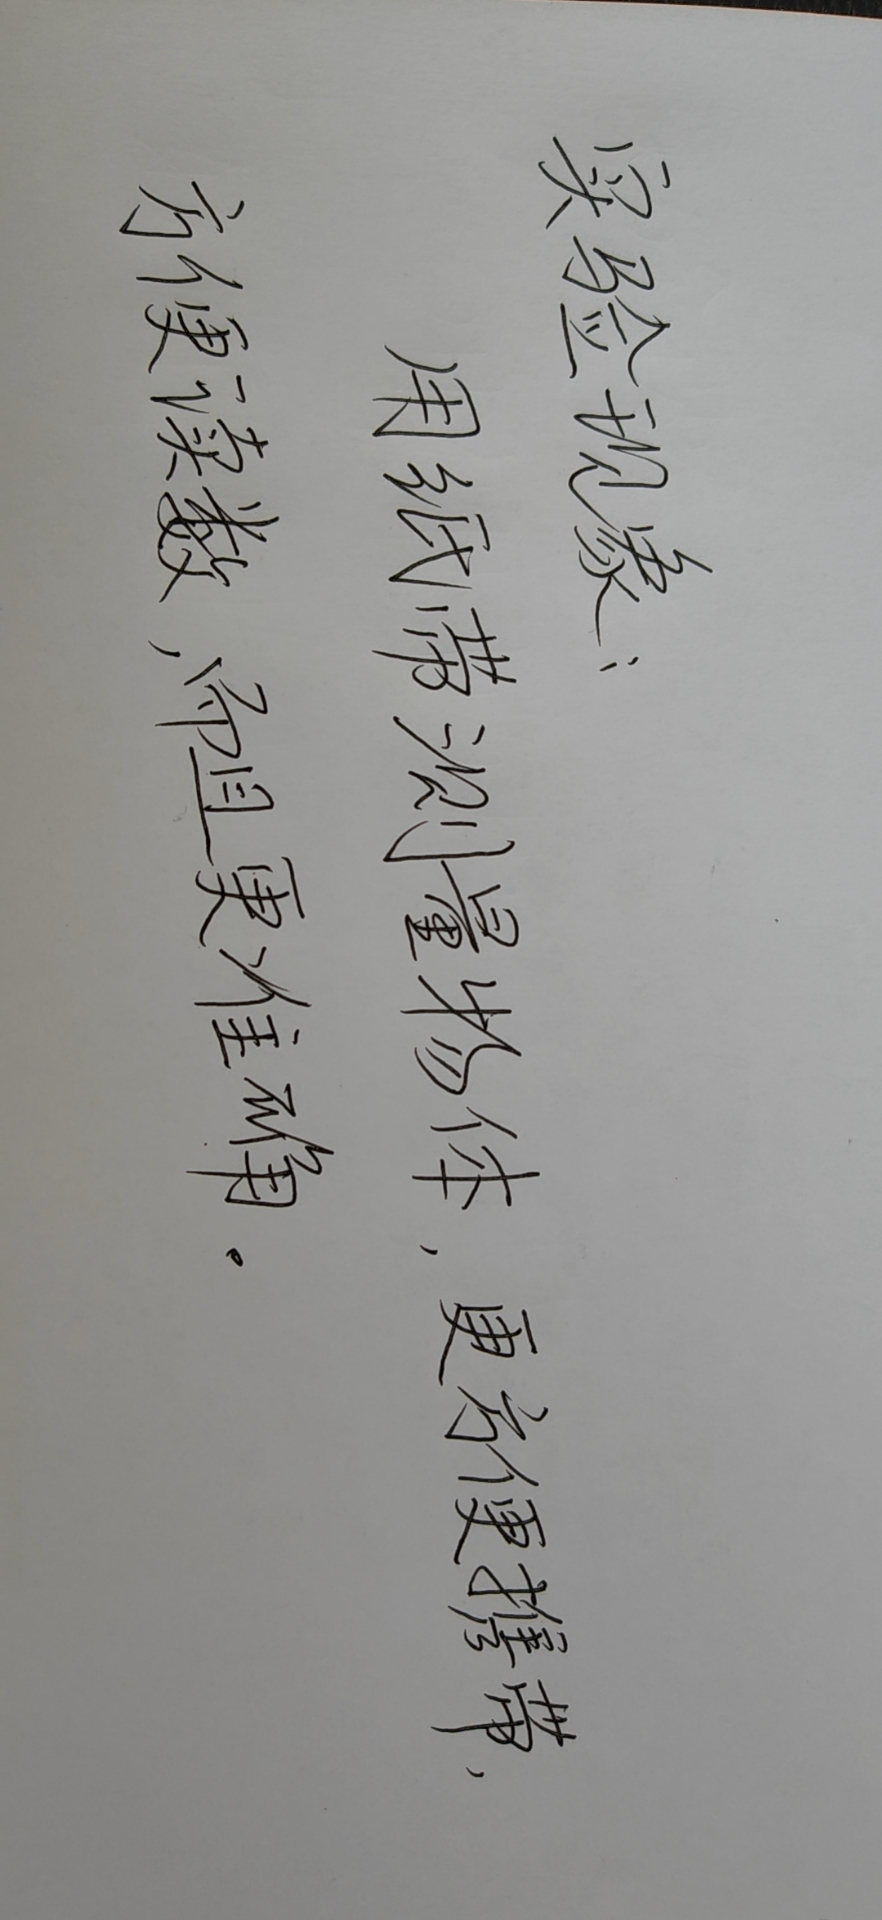 实验现象:
用纸带测量物体,更方便携带,
方便读数,而且更准确.